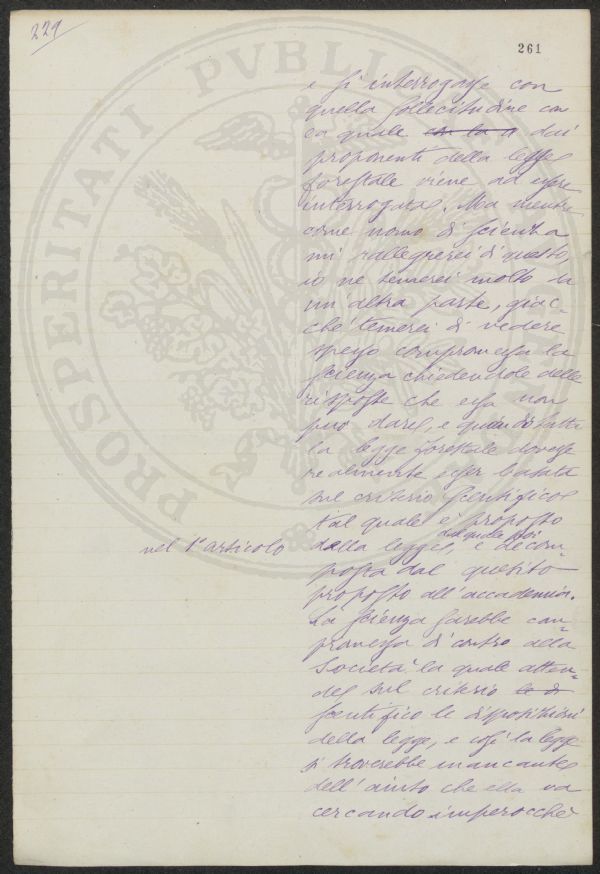 229
261
e si interrogasse con
quella sollecitudine con
la quale con la a dai
proponenti della legge
forestale viene ad essere
interrogata. Ma mentre
come uomo di scienza
mi rallegrerei di questo,
io ne temerei molto da
un'altra parte, giac-
chè temerei di vedere
spesso compromessa la
scienza chiedendole delle
risposte che essa non
può dare, e quando tutta
la legge forestale dovesse
realmente esser basata
sul criterio scientifico
tal quale è proposto
nel 1º articolo
dalla legge, e decom-
posta dal quesito
proposto all'accademia.
La scienza sarebbe com-
promessa di contro alla
Società la quale atten-
de sul criterio
scentifico le disposizioni
della legge, e così la legge
si troverebbe mancante
dell'aiuto che ella va
cercando imperocchè
PROSPERITATI PVBLICAE